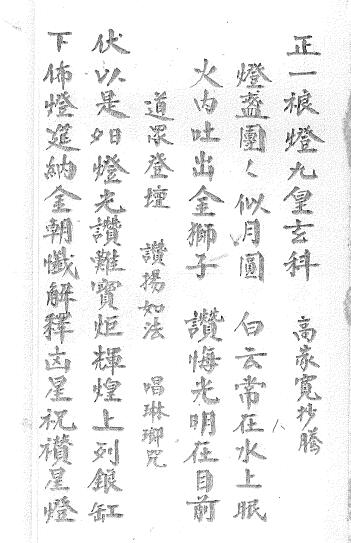 正一禳燈九皇玄科　高家寛抄騰
燈盞團く似月圓　白云常在水上眠
火内吐出金獅子　讚悔光明在目前
道眾登壇　讚揚如法　唱琳瑯咒
伏以是日燈光讚難寶炬輝煌上列銀缸
下佈燈進納金朝懺解釋凶星祝禳星燈